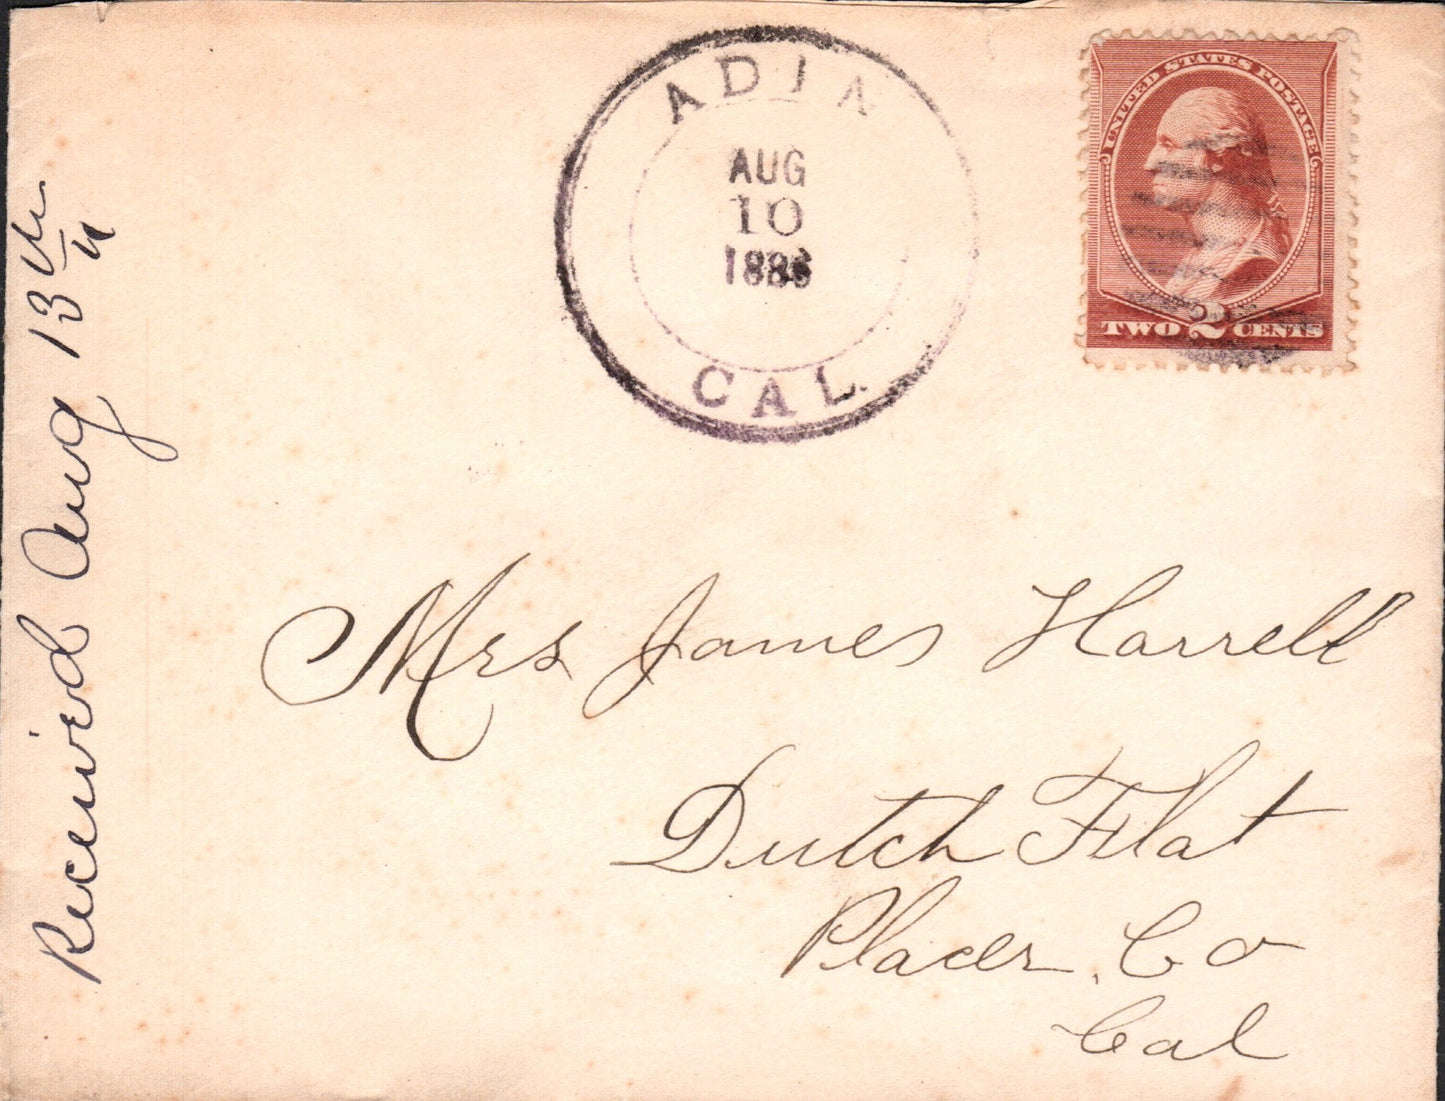 ADIN
AUG
10
1886
CAL.
UNITED STATES POSTAGE
TWO 2 CENTS
Received Aug 13th
Mrs James Harrell
Dutch Flat
Placer, Co
Cal